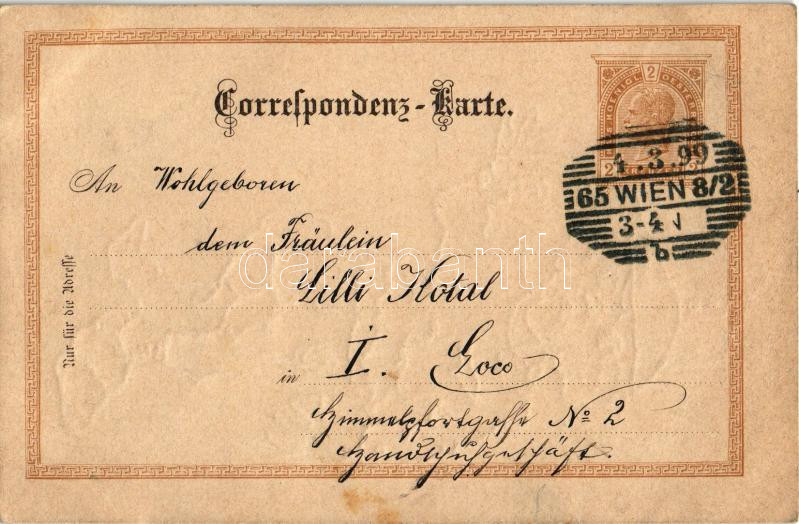 Correſpondenz-Karte.
2
KAIS. KOENIGL. OESTERR.
2
4.3.99
65 WIEN 8/2
3-4 N
b
An Wohlgeboren
dem Fräulein
darabanth
Lilli Kotal
in I. Loco
Himmelpfortgasse No 2
Handschuhgeschäft.
Nur für die Adreſſe